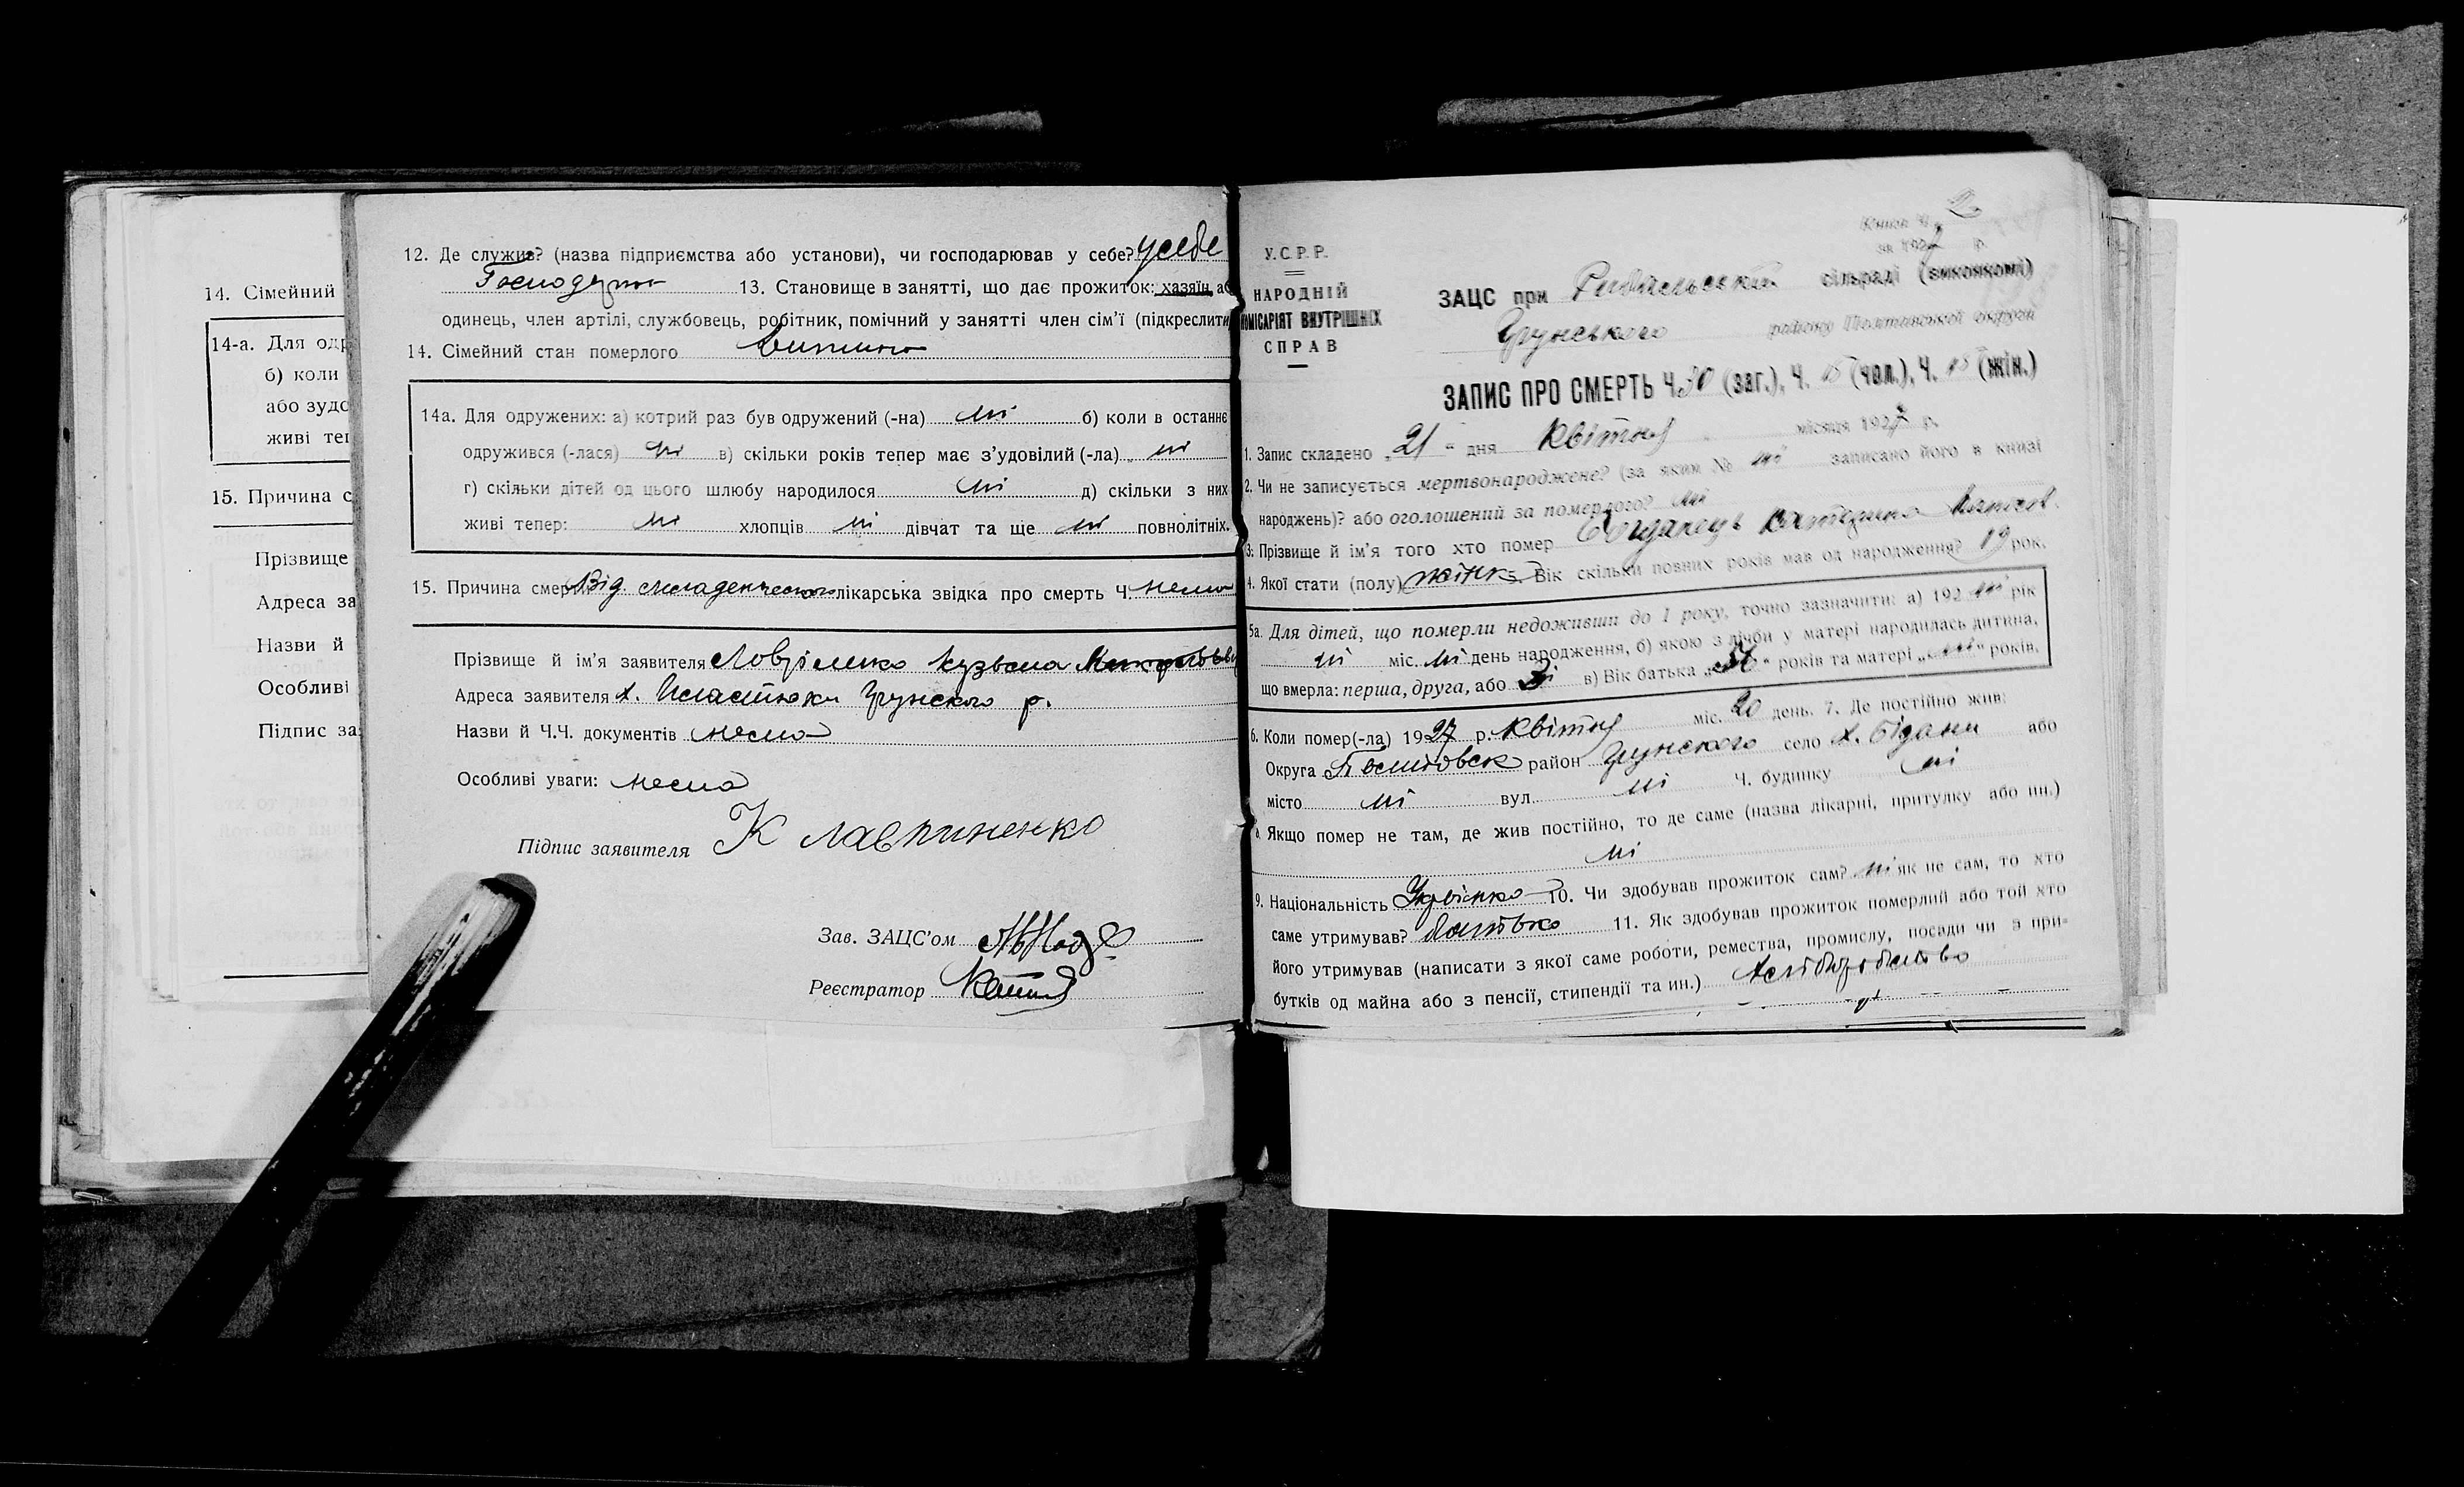 14. Сімейний
14-а. Для одр
б) коли
або зудо
живі теп
15. Причина с
Прізвище
Адреса за
Назви й
Особливі
Підпис за
12. Де служив? (назва підприємства або установи), чи господарював у себе? у себе
13. Становище в занятті, що дає прожиток: хазяїн, аб
одинець, член артілі, службовець, робітник, помічний у занятті член сім'ї (підкреслити
14. Сімейний стан померлого
14а. Для одружених: а) котрий раз був одружений (-на) ні б) коли в останнє
одружився (-лася) ні в) скільки років тепер має з'удовілий (-ла) ні
г) скільки дітей од цього шлюбу народилося ні д) скільки з них
живі тепер: ні хлопців ні дівчат та ще ні повнолітніх.
15. Причина смер Від лікарська звідка про смерть Ч. нема
Прізвище й ім'я заявителя Кузьма
Адреса заявителя х. Грунского р.
Назви й Ч.Ч. документів нема
Особливі уваги: нема
Підпис заявителя К Лавриненко
Зав. ЗАЦС'ом
Реєстратор
Книга Ч. 2
за 1927 р.
У.С.Р.Р.
НАРОДНІЙ
КОМІСАРІЯТ ВНУТРІШНІХ
СПРАВ
ЗАЦС при сільраді (виконкомі)
Грунського району Полтавської округи
ЗАПИС ПРО СМЕРТЬ Ч. 30 (заг.), Ч. 15 (чол.), Ч. 15 (жін.)
1. Запис складено „21" дня Квітня місяця 1927 р.
2. Чи не записується мертвонароджене? (за яким № ні записано його в книзі
народжень)? або оголошений за померлого? ні
3. Прізвище й ім'я того хто помер Катерина
4. Якої стати (полу) жінка 5. Вік скільки повних років мав од народження? 19 рок.
5а. Для дітей, що померли недоживши до 1 року, точно зазначити: а) 192 ні рік
ні міс. ні день народження, б) якою з лічби у матері народилась дитина,
що вмерла: перша, друга, або ні в) Вік батька „ " років та матері „ні" років.
6. Коли помер(-ла) 1927 р. Квітня міс. 20 день. 7. Де постійно жив:
Округа район Грунского село х. Бідани або
місто ні вул. ні Ч. будинку ні
8. Якщо помер не там, де жив постійно, то де саме (назва лікарні, притулку або ин.)
ні
9. Національність Українка 10. Чи здобував прожиток сам? ні як не сам, то хто
саме утримував? Батько 11. Як здобував прожиток померлий або той хто
його утримував (написати з якої саме роботи, ремества, промислу, посади чи з при-
бутків од майна або з пенсії, стипендії та ин.) Хліборобство